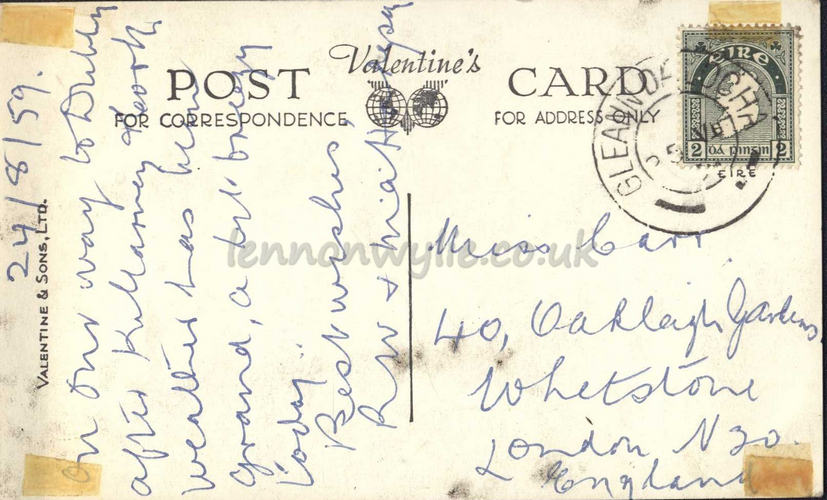 24/8/59.
On our way to Dublin
after Killarney & Cork
weather has been
grand, a bit breezy
today.
Best wishes,
VALENTINE & SONS, LTD.
Valentine's
POST CARD
FOR CORRESPONDENCE
FOR ADDRESS ONLY
GLEANN DE LOCHA
ÉIRE
2 dá pinsin 2
ÉIRE
Miss Carr.
40, Oakleigh Gardens,
Whetstone
London N20.
England
lennonwylie.co.uk